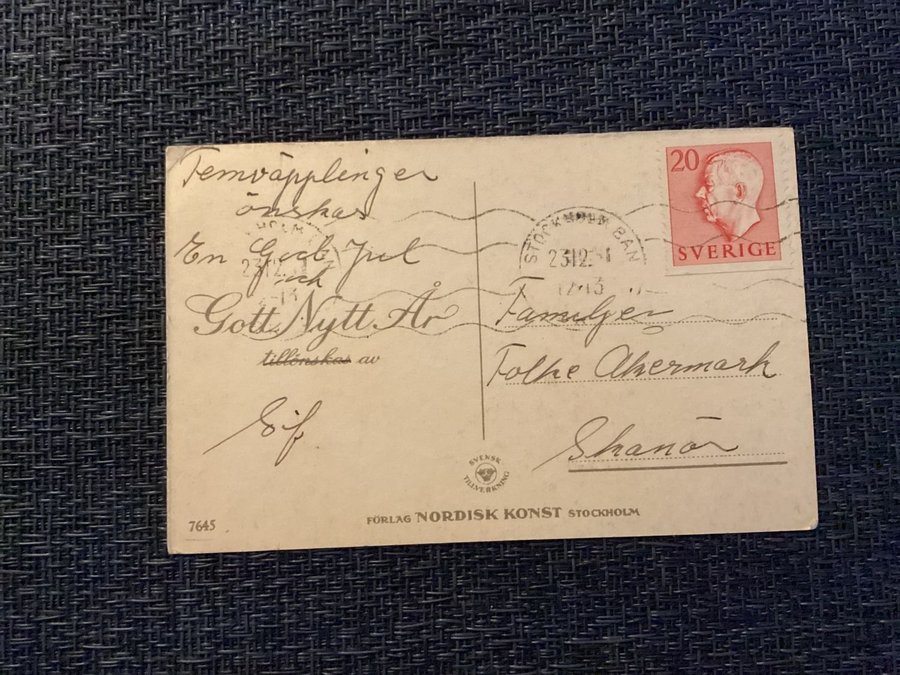 Femväpplinger
önskar
En God Jul
och
Gott Nytt År
tillönskas av
Eif
20
SVERIGE
STOCKHOLM BAN
23.12.51
12-13
Familjen
Folke Akermark
Skanör
SVENSK TILLVERKNING
7645
FÖRLAG NORDISK KONST STOCKHOLM